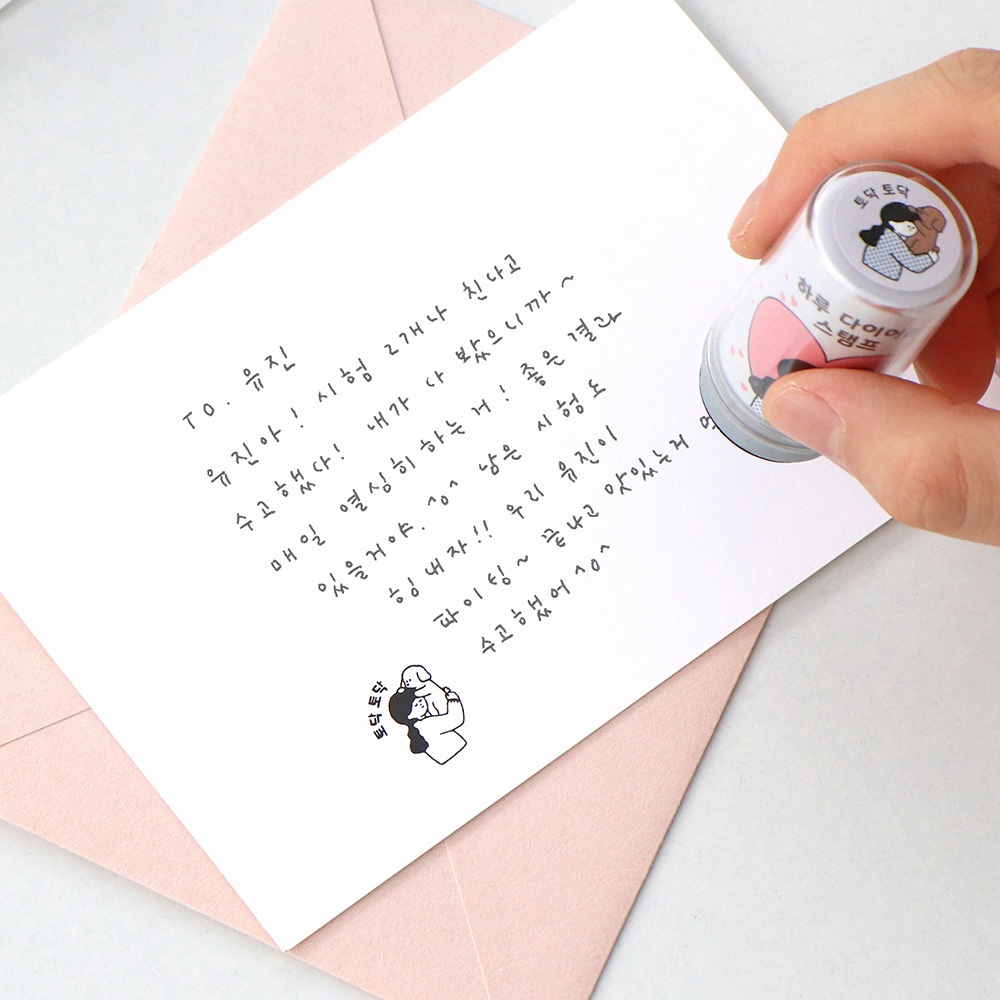 TO. 유진
유진아! 시험 2개나 친나고
수고했다! 내가 다 봤으니까~
매일 열심히 하는거! 좋은 결과
있을거야.^0^ 남은 시험도
힘내자!! 우리 유진이
파이팅~ 끝나고 맛있는거
수고했어^0^
토닥토닥
토닥토닥
하루 다이어
스탬프